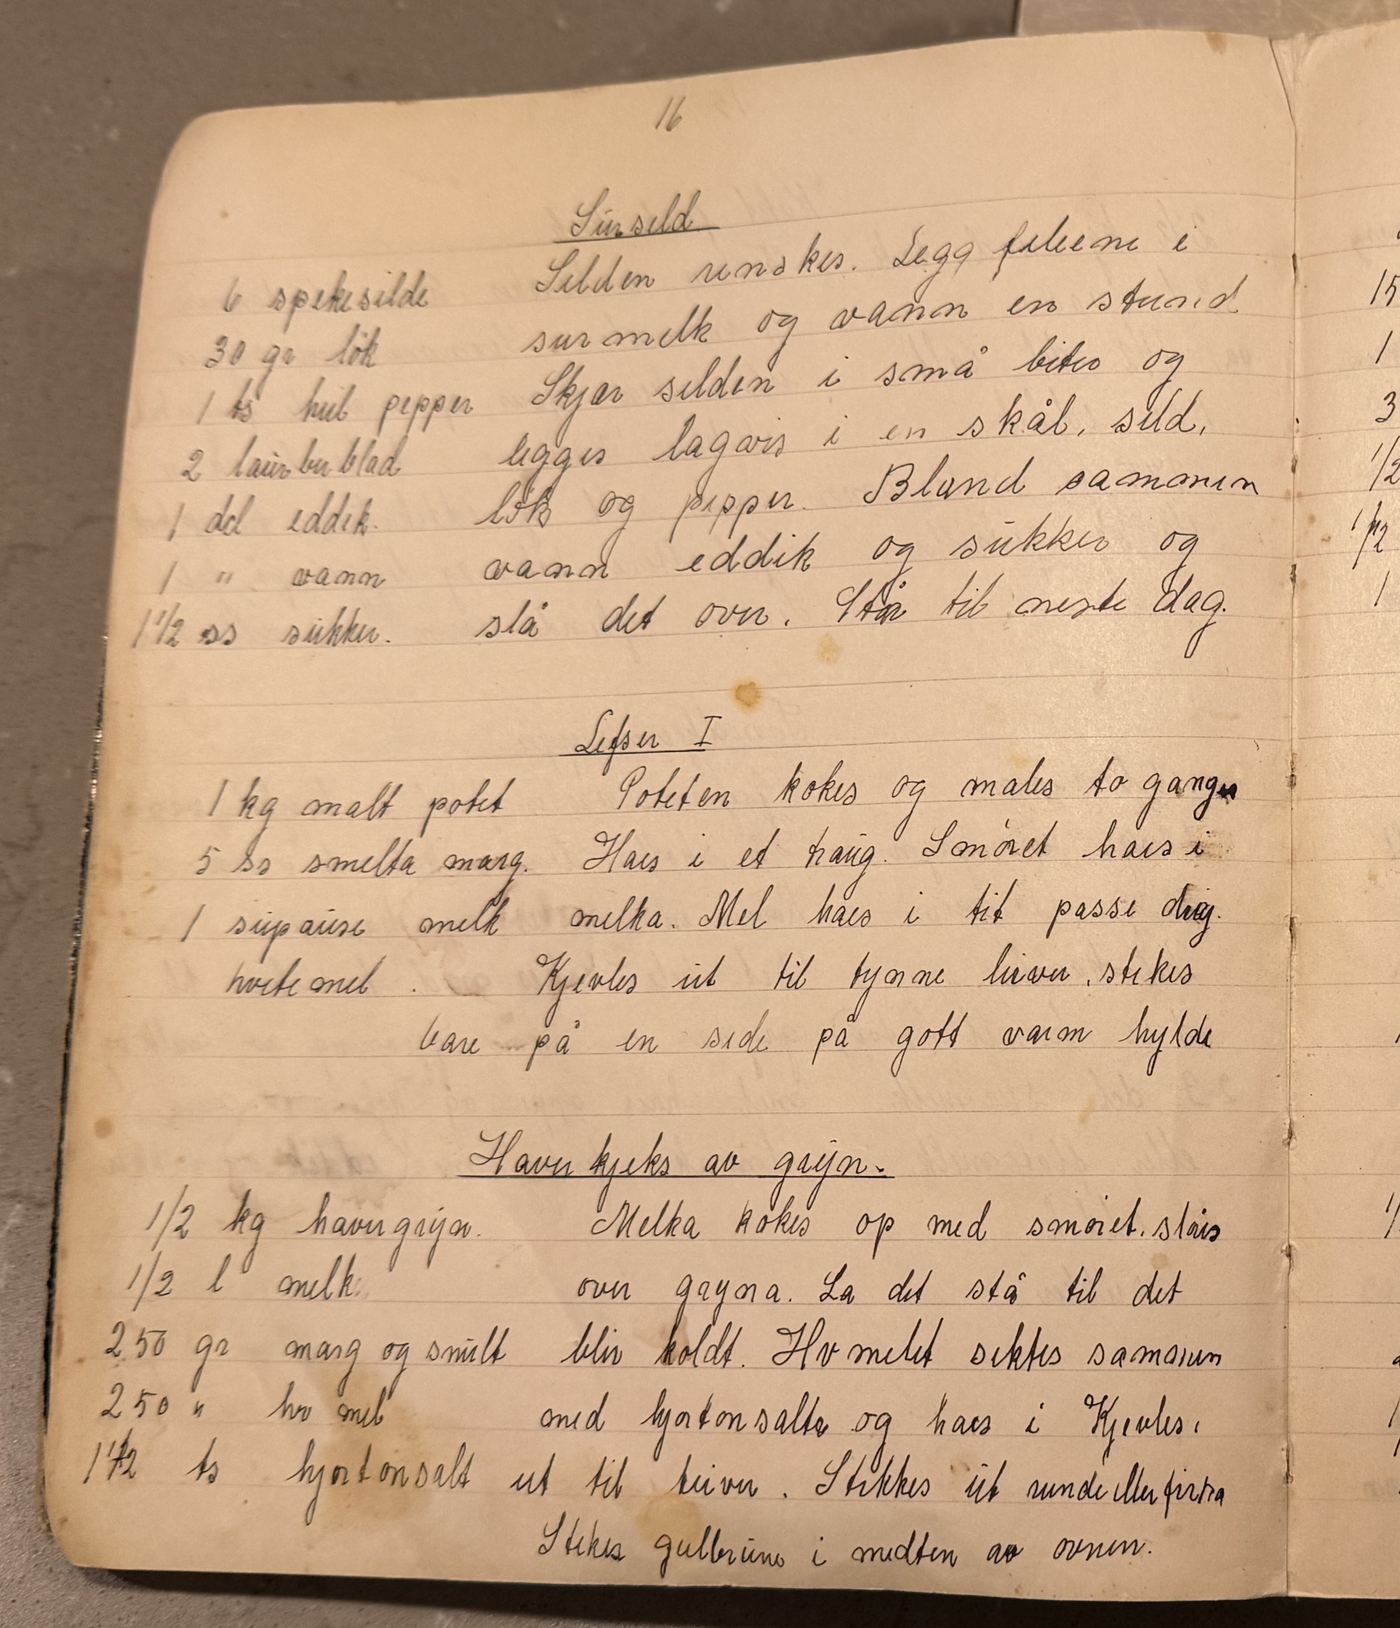 16
Sursild
6 spekesilde Silden renskes. Legg fileene i
30 gr løk sur melk og vann en stund
1 ts hel pepper Skjær silden i små biter og
2 laurberblad legges lagvis i en skål, sild,
1 dcl eddik. løk og pepper. Bland sammen
1 " vann vann eddik og sukker og
1 1/2 ss sukker. slå det over. Står til neste dag.
Lefser I
1 kg malt potet Poteten kokes og males to ganger
5 ss smelta marg. Haes i et traug. Smøret haes i
1 supause melk melka. Mel haes i tit passe deig.
hvetemel. Kjevles ut til tynne leiver, stekes
bare på en side på gott varm hylde
Haverkjeks av gryn.
1/2 kg havregryn. Melka kokes op med smøret, slåes
1/2 l melk over gryna. La det stå til det
250 gr marg og smult blir koldt. Hv melet siktes sammen
250 " hv mel med hjortonsalta og haes i Kjevles,
1 1/2 ts hjortonsalt ut til leiver. Stikkes ut runde eller firkta
Stekes gulbrune i midten av ovnen.
15
1
3
1/2
1/2
1